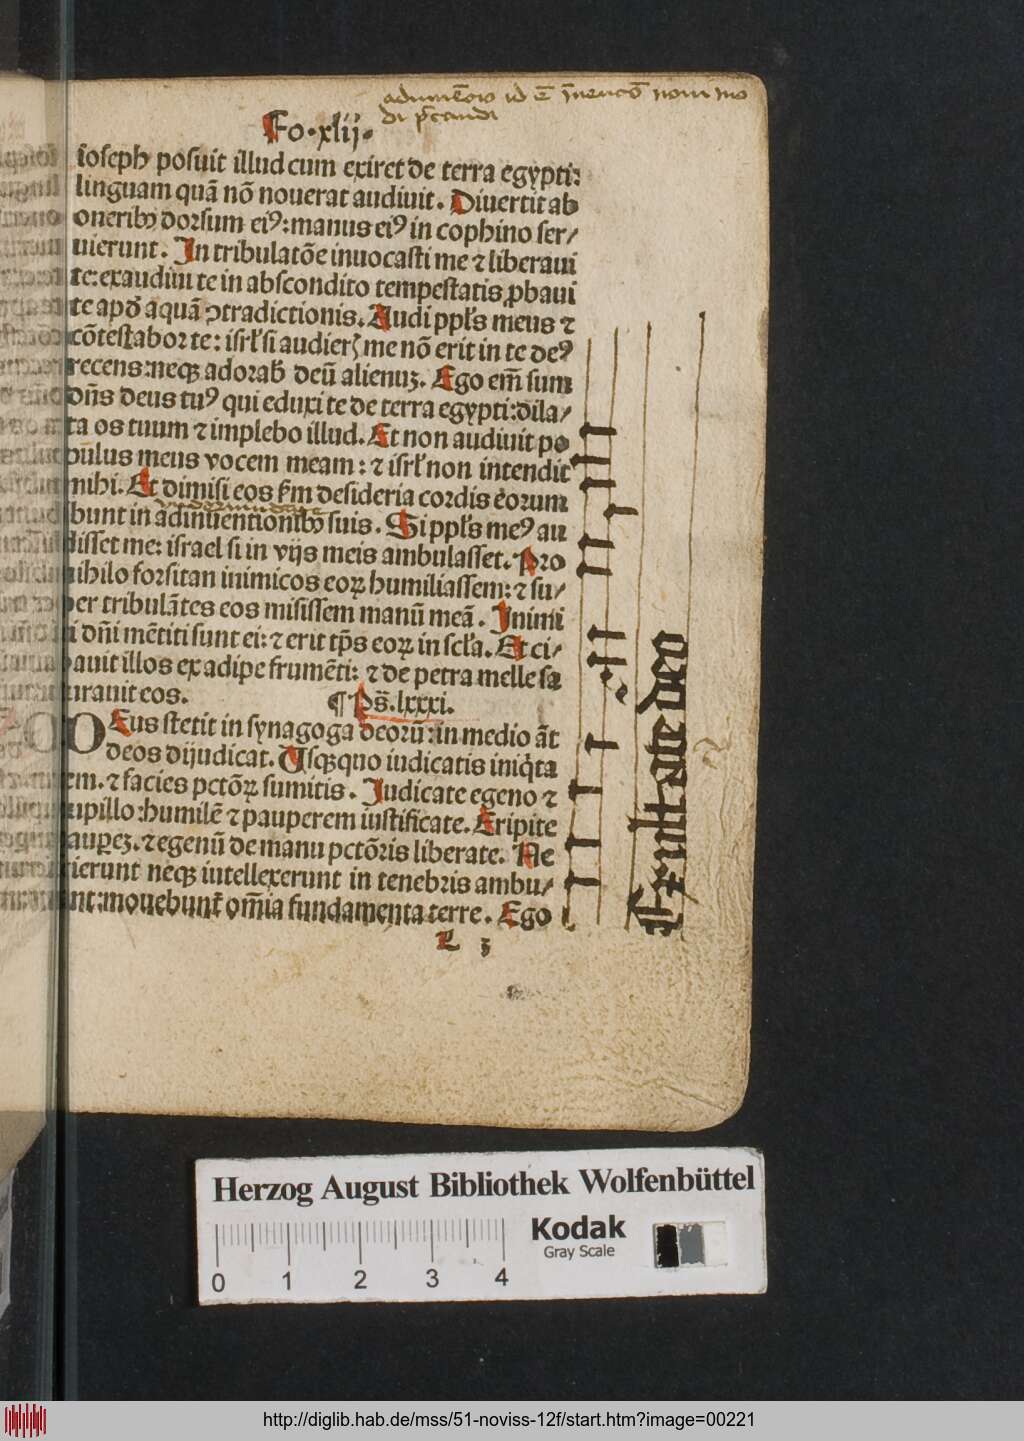 Fo. xlij.
ioseph posuit illud cum exiret de terra egypti:
linguam quā nō nouerat audiuit. Diuertit ab
oneribꝰ dorsum eiꝰ: manus eiꝰ in cophino ser/
uierunt. In tribulatōe inuocasti me ⁊ liberaui
te: exaudiui te in abscondito tempestatis ꝓbaui
te apđ aquā ꝯtradictionis. Audi ppl's meus ⁊
cōtestabor te: isrl' si audierꝭ me nō erit in te deꝰ
recens: neqꝫ adorab̄ deū alienuꝫ. Ego em̄ sum
dn̄s deus tuꝰ qui eduxi te de terra egypti: dila/
ta os tuum ⁊ implebo illud. Et non audiuit po
pulus meus vocem meam: ⁊ isrl' non intendit
mihi. Et dimisi eos ẜm desideria cordis eorum
bunt in adinuentionibꝰ suis. Si ppl's meꝰ au
disset me: israel si in vijs meis ambulasset. Pro
nihilo forsitan inimicos eoꝝ humiliassem: ⁊ su/
per tribulātes eos misissem manū meā. Inimi
ci dn̄i mētiti sunt ei: ⁊ erit tp̄s eoꝝ in scl'a. Et ci/
bauit illos ex adipe frumēti: ⁊ de petra melle sa
turauit eos. ¶ Ps̄. lxxxi.
DEus stetit in synagoga deorū: in medio āt
deos dijudicat. Usqꝫquo iudicatis iniq̇ta
tem. ⁊ facies pctōꝝ sumitis. Iudicate egeno ⁊
pupillo: humilē ⁊ pauperem iustificate. Eripite
pauꝑeꝫ. ⁊ egenū de manu pctōris liberate. Ne
scierunt neqꝫ intellexerunt in tenebris ambu/
lant: mouebunt̄ om̄ia fundamenta terre. Ego
L 3
Exultate deo
Herzog August Bibliothek Wolfenbüttel
Kodak
Gray Scale
0 1 2 3 4
http://diglib.hab.de/mss/51-noviss-12f/start.htm?image=00221